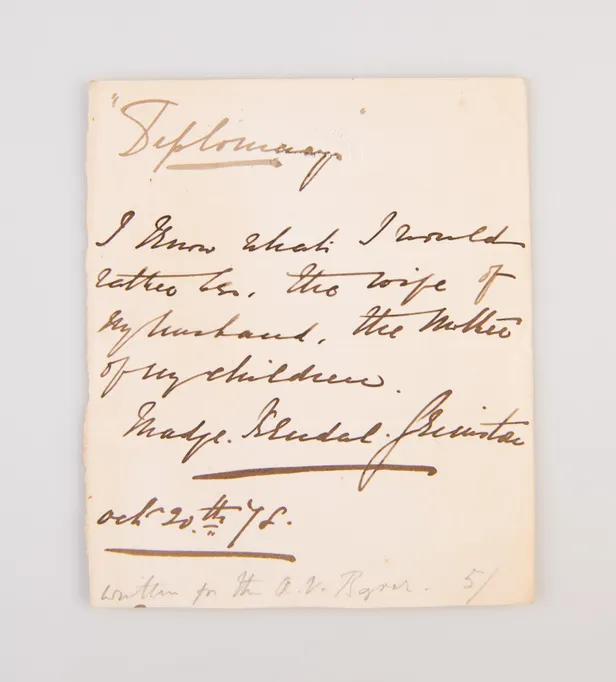 "Diplomacy"
I know what I would
rather be, the wife of
my husband, the Mother
of my children.
Madge. Kendal. Grimston
Oct 20.th 78.
written for the A. V. 5/